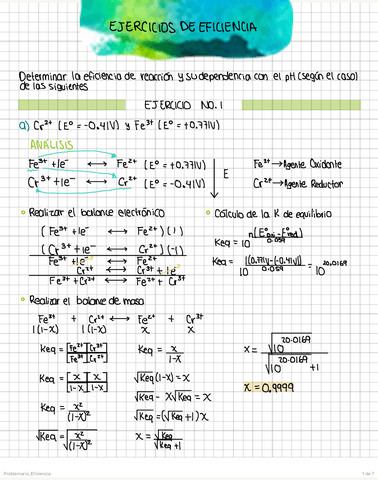 EJERCICIOS DE EFICIENCIA
Determinar la eficiencia de reacción y su dependencia con el pH (según el caso)
de las siguientes
EJERCICIO NO. 1
a) Cr²⁺ (E° = -0.41V) y Fe³⁺ (E° = +0.77V)
ANÁLISIS
Fe³⁺ + 1e⁻ ⟷ Fe²⁺ (E° = +0.77V)
Cr³⁺ + 1e⁻ ⟷ Cr²⁺ (E° = -0.41V)
E
Fe³⁺ → Agente Oxidante
Cr²⁺ → Agente Reductor
Realizar el balance electrónico
( Fe³⁺ + 1e⁻ ⟷ Fe²⁺ ) (1)
( Cr³⁺ + 1e⁻ ⟷ Cr²⁺ ) (-1)
Fe³⁺ + 1e⁻ ⟷ Fe²⁺
Cr²⁺ ⟷ Cr³⁺ + 1e⁻
Fe³⁺ + Cr²⁺ ⟷ Fe²⁺ + Cr³⁺
Cálculo de la K de equilibrio
Keq = 10^(n(E°oxi - E°red)/0.059)
Keq = 10^(1(0.77V - (-0.41V))/0.059) = 10^20.0169
Realizar el balance de masa
Fe³⁺ + Cr²⁺ ⟷ Fe²⁺ + Cr³⁺
1(1-x) 1(1-x) x x
Keq = [Fe²⁺][Cr³⁺] / [Fe³⁺][Cr²⁺]
Keq = [x][x] / [1-x][1-x]
Keq = x² / (1-x)²
√Keq = √(x² / (1-x)²)
Keq = x / 1-x
√Keq (1-x) = x
√Keq - x√Keq = x
√Keq = (√Keq + 1)x
x = √Keq / √Keq + 1
x = √10^20.0169 / √10^20.0169 + 1
x = 0.9999
Problemario_Eficiencia
1 de 7